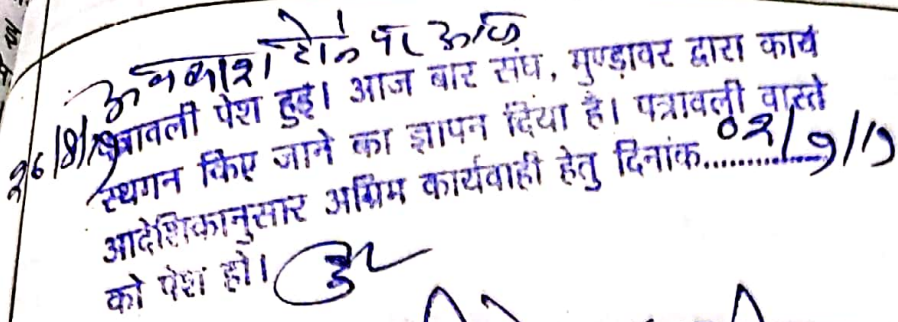 अवकाश होने पर आज
26/8/19 पत्रावली पेश हुई। आज बार संघ, मुण्डावर द्वारा कार्य
स्थगन किए जाने का ज्ञापन दिया है। पत्रावली वास्ते
आदेशिकानुसार अग्रिम कार्यवाही हेतु दिनांक..........02/9/19
को पेश हो।